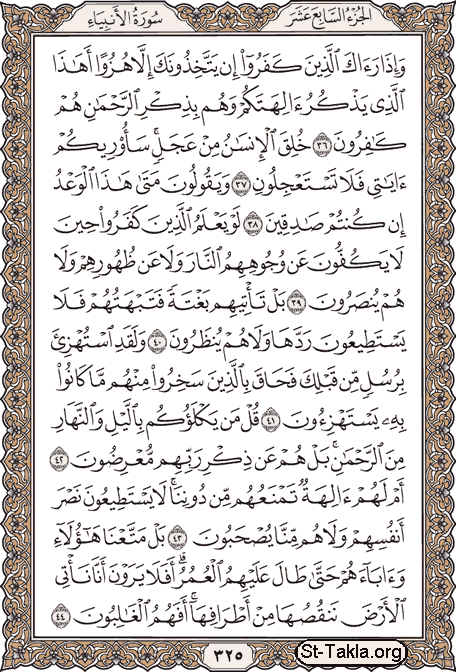 الجزء السابع عشر
سورة الأنبياء
وَإِذَا رَءَاكَ ٱلَّذِينَ كَفَرُوٓا۟ إِن يَتَّخِذُونَكَ إِلَّا هُزُوًا أَهَٰذَا
ٱلَّذِى يَذْكُرُ ءَالِهَتَكُمْ وَهُم بِذِكْرِ ٱلرَّحْمَٰنِ هُمْ
كَٰفِرُونَ ٣٦ خُلِقَ ٱلْإِنسَٰنُ مِنْ عَجَلٍ ۚ سَأُو۟رِيكُمْ
ءَايَٰتِى فَلَا تَسْتَعْجِلُونِ ٣٧ وَيَقُولُونَ مَتَىٰ هَٰذَا ٱلْوَعْدُ
إِن كُنتُمْ صَٰدِقِينَ ٣٨ لَوْ يَعْلَمُ ٱلَّذِينَ كَفَرُوا۟ حِينَ
لَا يَكُفُّونَ عَن وُجُوهِهِمُ ٱلنَّارَ وَلَا عَن ظُهُورِهِمْ وَلَا
هُمْ يُنصَرُونَ ٣٩ بَلْ تَأْتِيهِم بَغْتَةً فَتَبْهَتُهُمْ فَلَا
يَسْتَطِيعُونَ رَدَّهَا وَلَا هُمْ يُنظَرُونَ ٤٠ وَلَقَدِ ٱسْتُهْزِئَ
بِرُسُلٍ مِّن قَبْلِكَ فَحَاقَ بِٱلَّذِينَ سَخِرُوا۟ مِنْهُم مَّا كَانُوا۟
بِهِۦ يَسْتَهْزِءُونَ ٤١ قُلْ مَن يَكْلَؤُكُم بِٱلَّيْلِ وَٱلنَّهَارِ
مِنَ ٱلرَّحْمَٰنِ ۗ بَلْ هُمْ عَن ذِكْرِ رَبِّهِم مُّعْرِضُونَ ٤٢
أَمْ لَهُمْ ءَالِهَةٌ تَمْنَعُهُم مِّن دُونِنَا ۚ لَا يَسْتَطِيعُونَ نَصْرَ
أَنفُسِهِمْ وَلَا هُم مِّنَّا يُصْحَبُونَ ٤٣ بَلْ مَتَّعْنَا هَٰٓؤُلَآءِ
وَءَابَآءَهُمْ حَتَّىٰ طَالَ عَلَيْهِمُ ٱلْعُمُرُ ۗ أَفَلَا يَرَوْنَ أَنَّا نَأْتِى
ٱلْأَرْضَ نَنقُصُهَا مِنْ أَطْرَافِهَآ ۚ أَفَهُمُ ٱلْغَٰلِبُونَ ٤٤
٣٢٥
St-Takla.org